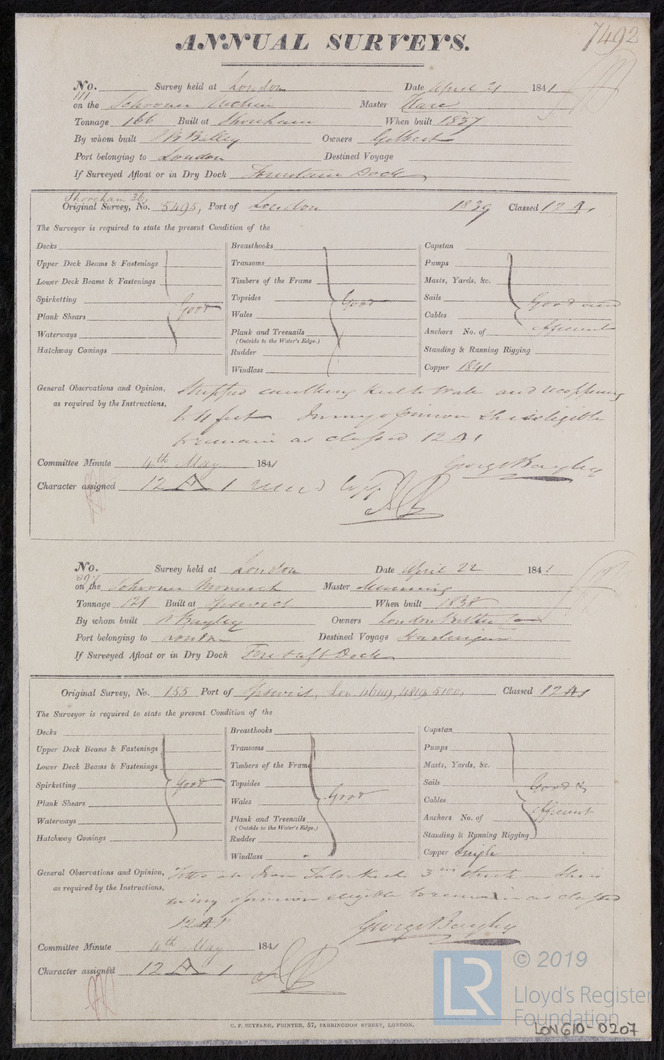 7492
ANNUAL SURVEYS.
No. 111 Survey held at London Date April 21 1841
on the Schooner Master Hare
Tonnage 166 Built at Shoreham When built 1837
By whom built Owners Gilbert
Port belonging to London Destined Voyage
If Surveyed Afloat or in Dry Dock Fountain Dock
Shoreham 36
Original Survey, No. 5495, Port of London 1839 Classed 12 A1
The Surveyor is required to state the present Condition of the
Decks
Upper Deck Beams & Fastenings
Lower Deck Beams & Fastenings
Spirketting Good
Plank Shears
Waterways
Hatchway Comings
Breasthooks
Transoms
Timbers of the Frame
Topsides Good
Wales
Plank and Treenails
(Outside to the Water's Edge.)
Rudder
Windlass
Capstan
Pumps
Masts, Yards, &c.
Sails Good and
Cables
Anchors No. of efficient
Standing & Running Rigging
Copper 1841
General Observations and Opinion, Stripped caulking Keel to Wale and
as required by the Instructions. 11 feet In my opinion She is eligible
to remain as classed 12 A1
Committee Minute 4th May 1841 George Bayley
Character assigned 12 A 1
No. Survey held at London Date April 22 1841
on the Schooner Monarch Master Manning
Tonnage 121 Built at Ipswich When built 1838
By whom built Bayley Owners London
Port belonging to London Destined Voyage Harlingen
If Surveyed Afloat or in Dry Dock Dock
Original Survey, No. 155 Port of Ipswich, Lon Classed 12 A1
The Surveyor is required to state the present Condition of the
Decks
Upper Deck Beams & Fastenings
Lower Deck Beams & Fastenings
Spirketting Good
Plank Shears
Waterways
Hatchway Comings
Breasthooks
Transoms
Timbers of the Frame
Topsides
Wales Good
Plank and Treenails
(Outside to the Water's Edge.)
Rudder
Windlass
Capstan
Pumps
Masts, Yards, &c.
Sails Good &
Cables
Anchors No. of efficient
Standing & Running Rigging
Copper Single
General Observations and Opinion,
as required by the Instructions. in my opinion eligible to remain as classed
12 A1
George Bayley
Committee Minute 4th May 1841
Character assigned 12 A 1
C. F. SEYFANG, PRINTER, 57, FARRINGDON STREET, LONDON.
LR © 2019
Lloyd's Register
Foundation
LON610-0207